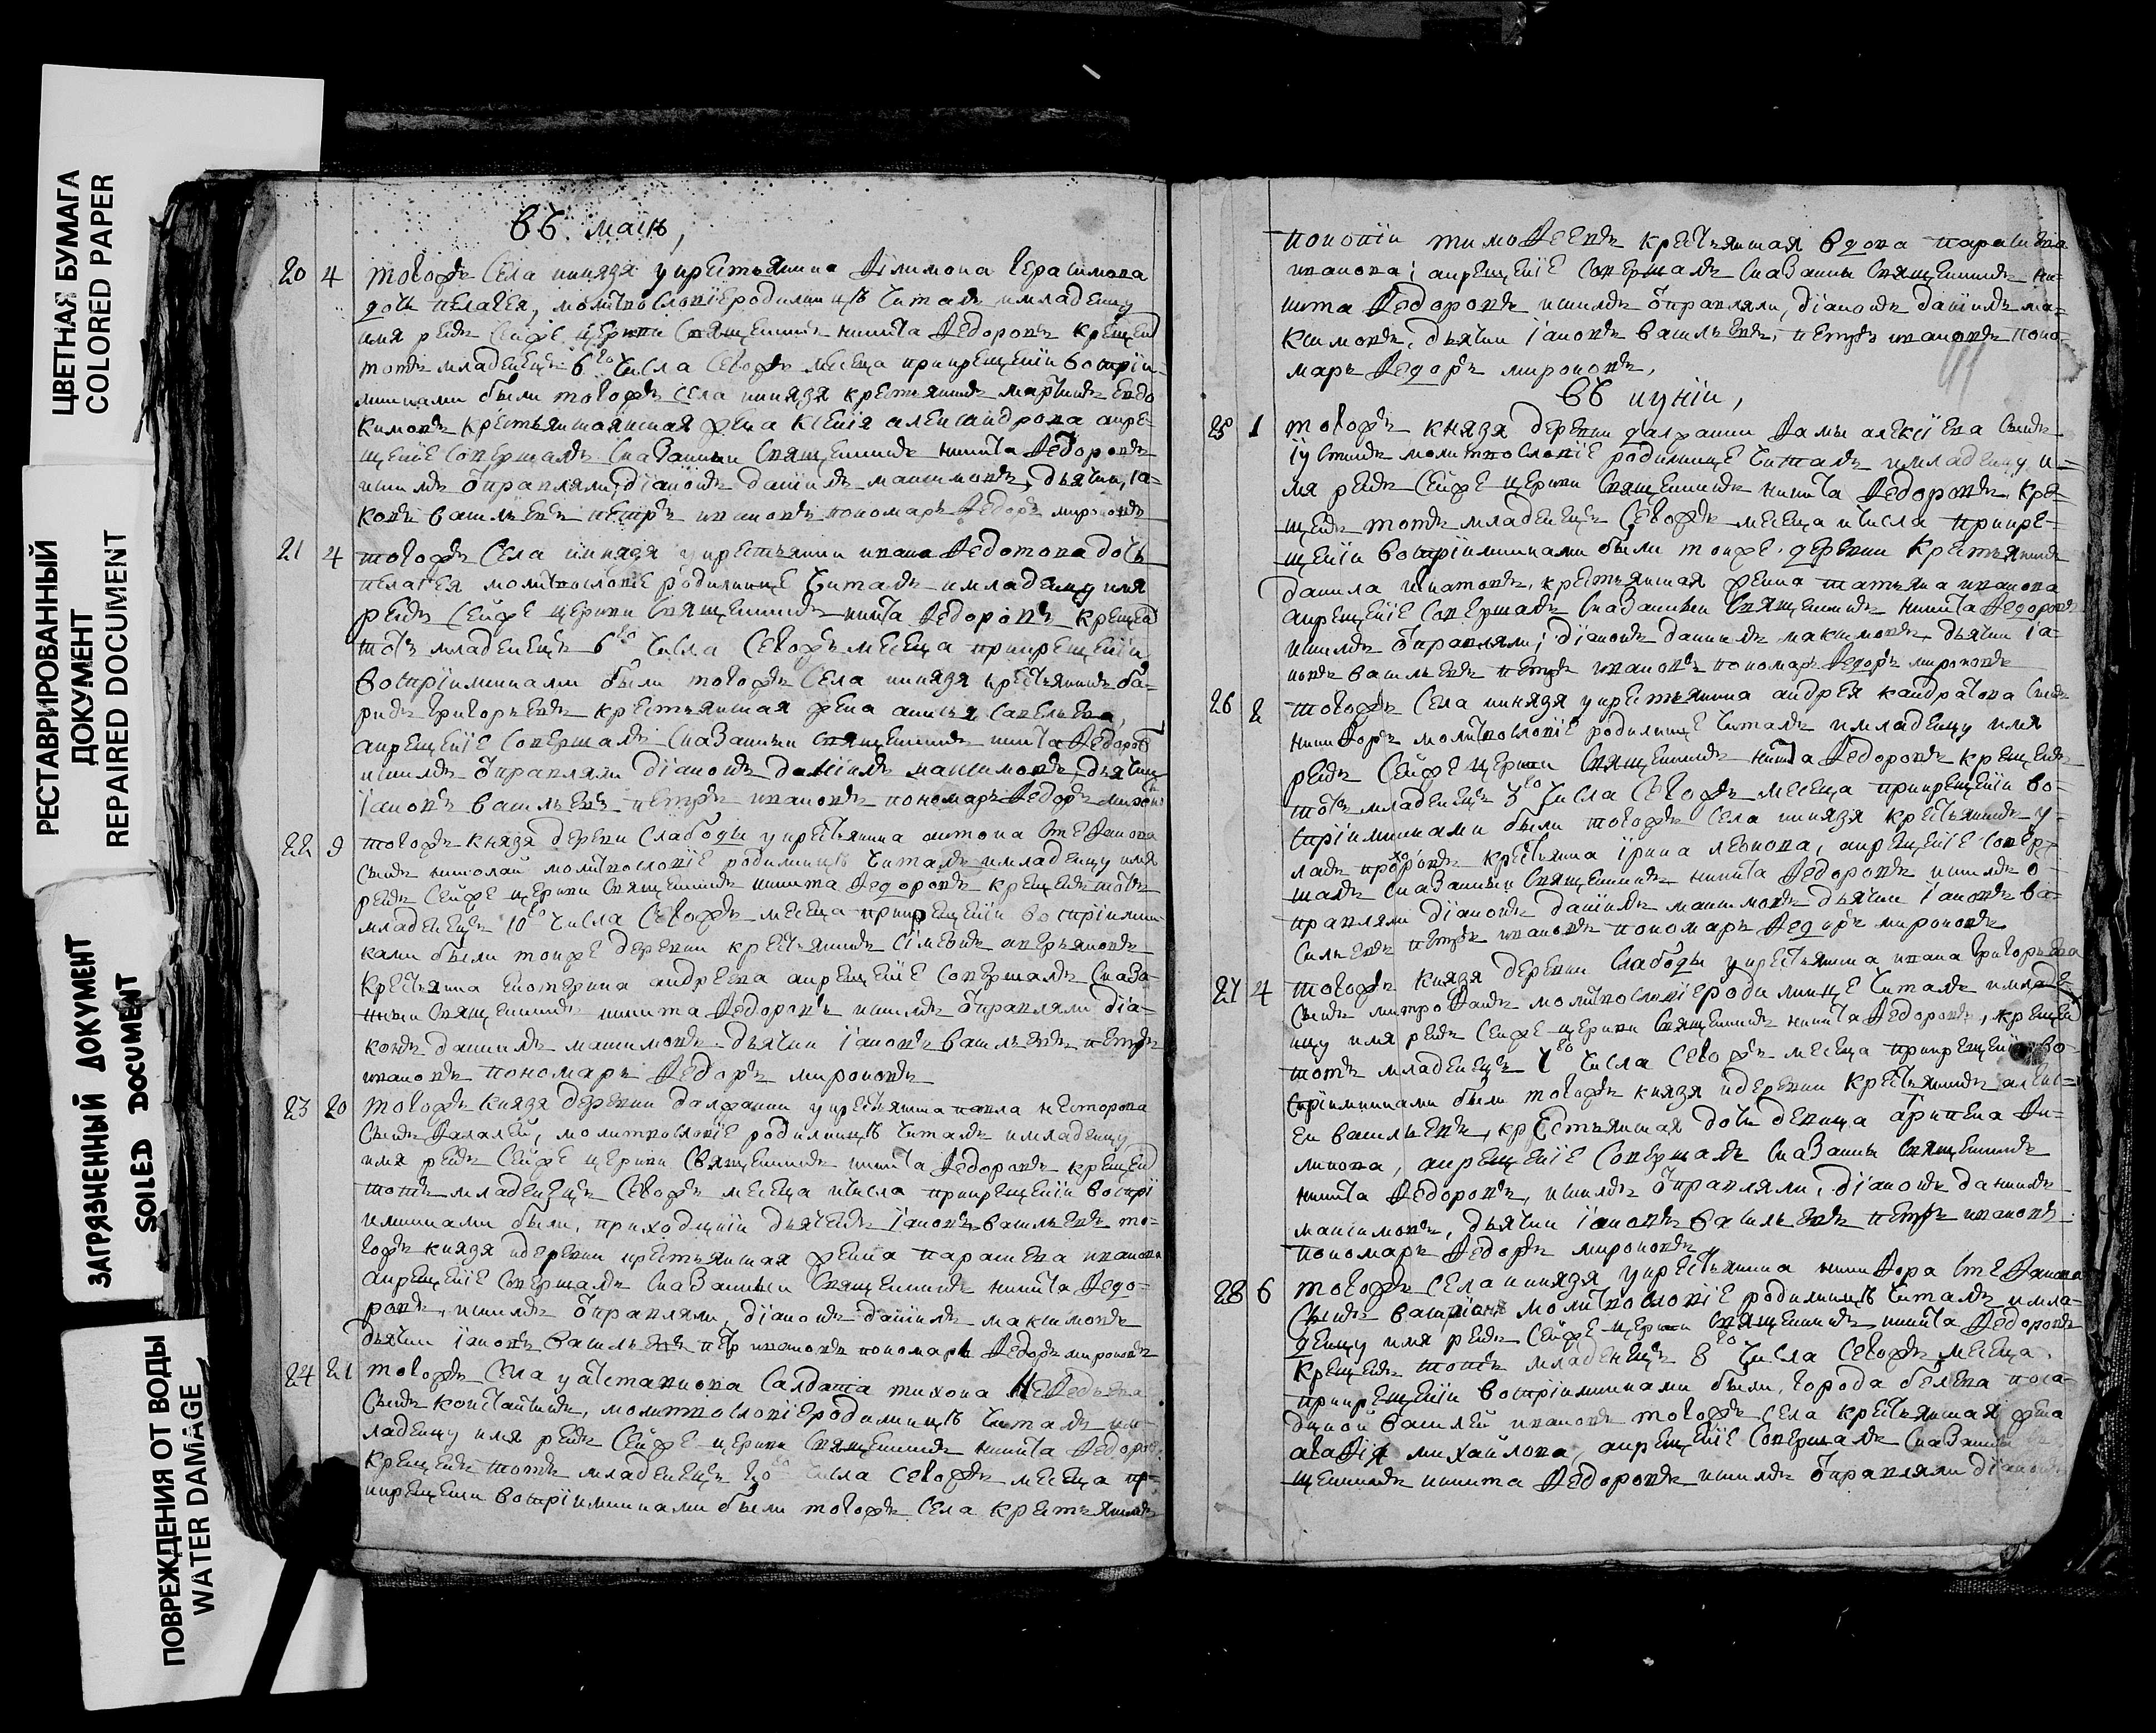 ЦВЕТНАЯ БУМАГА
COLORED PAPER
РЕСТАВРИРОВАННЫЙ
ДОКУМЕНТ
REPAIRED DOCUMENT
ЗАГРЯЗНЕННЫЙ ДОКУМЕНТ
SOILED DOCUMENT
ПОВРЕЖДЕНИЯ ОТ ВОДЫ
WATER DAMAGE
въ маиѣ,
20 4 тогожъ села князя у крестьянина филимона герасимова
дочь пелагея, молитвословие родилницѣ читалъ и младенцу
имя рекъ сейже церкви священникъ никита федоровъ крещенъ
тотъ младенецъ 6го числа севожъ месеца при крещении восприи-
мниками были тогожъ села князя крестьянинъ мартинъ евдо
кимовъ крестьянская жена ксения александрова а кре-
щение совершалъ сказанныи священникъ никита федоровъ
и с нимъ отправляли диаконъ данилъ максимовъ, дьячки иа-
ковъ васильевъ петръ ивановъ пономарь федоръ мироновъ
21 4 тогожъ села князя у крестьянина ивана федотова дочь
пелагея молитвословие родилнице читалъ и младенцу имя
рекъ сейже церкви священникъ никита федоровъ крещенъ
тотъ младенецъ 6го числа севожъ месеца при крещении
восприимниками были тогожъ села князя крестьянинъ ба-
рисъ григорьевъ крестьянская жена анисья савельева,
а крещение совершалъ сказанныи священникъ никита федоровъ
и с нимъ отправляли диаконъ данилъ максимовъ, дьячки
иаковъ васильевъ петръ ивановъ пономарь федоръ мироновъ
22 9 тогожъ князя деревни слабоды у крестьянина антона стефанова
сынъ николай молитвословие родилницѣ читалъ и младенцу имя
рекъ сейже церкви священникъ никита федоровъ крещенъ тотъ
младенецъ 10го числа севожъ месеца при крещении восприимни-
ками были тоиже деревни крестьянинъ аверьяновъ
крестьянка андреева а крещение совершалъ сказа-
нныи священникъ никита федоровъ и с нимъ отправляли диа-
конъ данилъ максимовъ дьячки иаковъ васильевъ петръ
ивановъ пономарь федоръ мироновъ
23 20 тогожъ князя деревни далжани у крестьянина павла несторова
сынъ фалалей, молитвословие родилницѣ читалъ и младенцу
имя рекъ сейже церкви священникъ никита федоровъ крещенъ
тотъ младенецъ севожъ месеца и числа при крещении воспри
имниками были, приходцкии дьячекъ иаковъ васильевъ то-
гожъ князя и деревни крестьянская жена парасьева иванова
а крещение совершалъ сказанныи священникъ никита федо-
ровъ, и с нимъ отправляли, диаконъ данилъ максимовъ
дьячки иаковъ васильевъ петръ ивановъ пономарь федоръ мироновъ
24 21 тогожъ села у салдата тихона
сынъ констаньтинъ, молитвословие родилницѣ читалъ и м-
ладенцу имя рекъ сейже церкви священникъ никита федоровъ
крещенъ тотъ младенецъ числа севожъ месеца при
крещении восприимниками были тогожъ села крестьянинъ
тимофеевъ крестьянская вдова парасьева
иванова; а крещение совершалъ сказанны священникъ ни-
кита федоровъ и с нимъ отправляли, диаконъ данилъ ма-
ксимовъ, дьячки иаковъ васильевъ, петръ ивановъ поно-
марь федоръ мироновъ,
въ иунии,
25 1 тогожъ князя деревни далжани фомы алексиева сынъ
иустинъ молитвословие родилнице читалъ и младенцу и-
мя рекъ сейже церкви священникъ никита федоровъ кре-
щенъ тотъ младенецъ севожъ месеца и числа при кре-
щении восприимниками были тоиже деревни крестьянинъ
данила крестьянская жена татьяна иванова
а крещение совершалъ сказанныи священникъ никита федоровъ
и с нимъ отправляли; диаконъ данилъ максимовъ, дьячки иа-
ковъ васильевъ петръ ивановъ пономарь федоръ мироновъ
26 2 тогожъ села князя у крестьянина андрея кандратова сынъ
никифоръ молитвословие родилнице читалъ и младенцу имя
рекъ сейже церкви священникъ никита федоровъ крещенъ
тотъ младенецъ 3го числа севожъ месеца при крещении во-
сприимниками были тогожъ села князя крестьянинъ у-
ласъ крестьянка ирина левкова, а крещение совер-
шалъ сказанныи священникъ никита федоровъ и с нимъ о-
тправляли диаконъ данилъ максимовъ дьячки иаковъ ва-
сильевъ петръ ивановъ пономарь федоръ мироновъ
27 4 тогожъ князя деревни слабоды у крестьянина ивана григорьева
сынъ митрофанъ молитвословие родилнице читалъ и младе-
нцу имя рекъ сейже церкви священникъ никита федоровъ, крещенъ
тотъ младенецъ числа севожъ месеца при крещении во-
сприимниками были тогожъ князя и деревни крестьянинъ алекс-
еи васильевъ, крестьянская дочь девица фи-
липова, а крещение совершалъ сказанны священникъ
никита федоровъ, и с нимъ отправляли, диаконъ данилъ
максимовъ, дьячки иаковъ васильевъ петръ ивановъ
пономарь федоръ мироновъ,
28 6 тогожъ села князя у крестьянина никифора стефанова
сынъ молитвословие родилницѣ читалъ и мла-
денцу имя рекъ сейже церкви священникъ никита федоровъ
крещенъ тотъ младенецъ 8го числа севожъ месеца
при крещении восприимниками были, города белева поса-
дцкой василей ивановъ тогожъ села крестьянская жена
агафия михайлова, а крещение совершалъ сказанныи
щенникъ никита федоровъ и с нимъ отправляли диаконъ